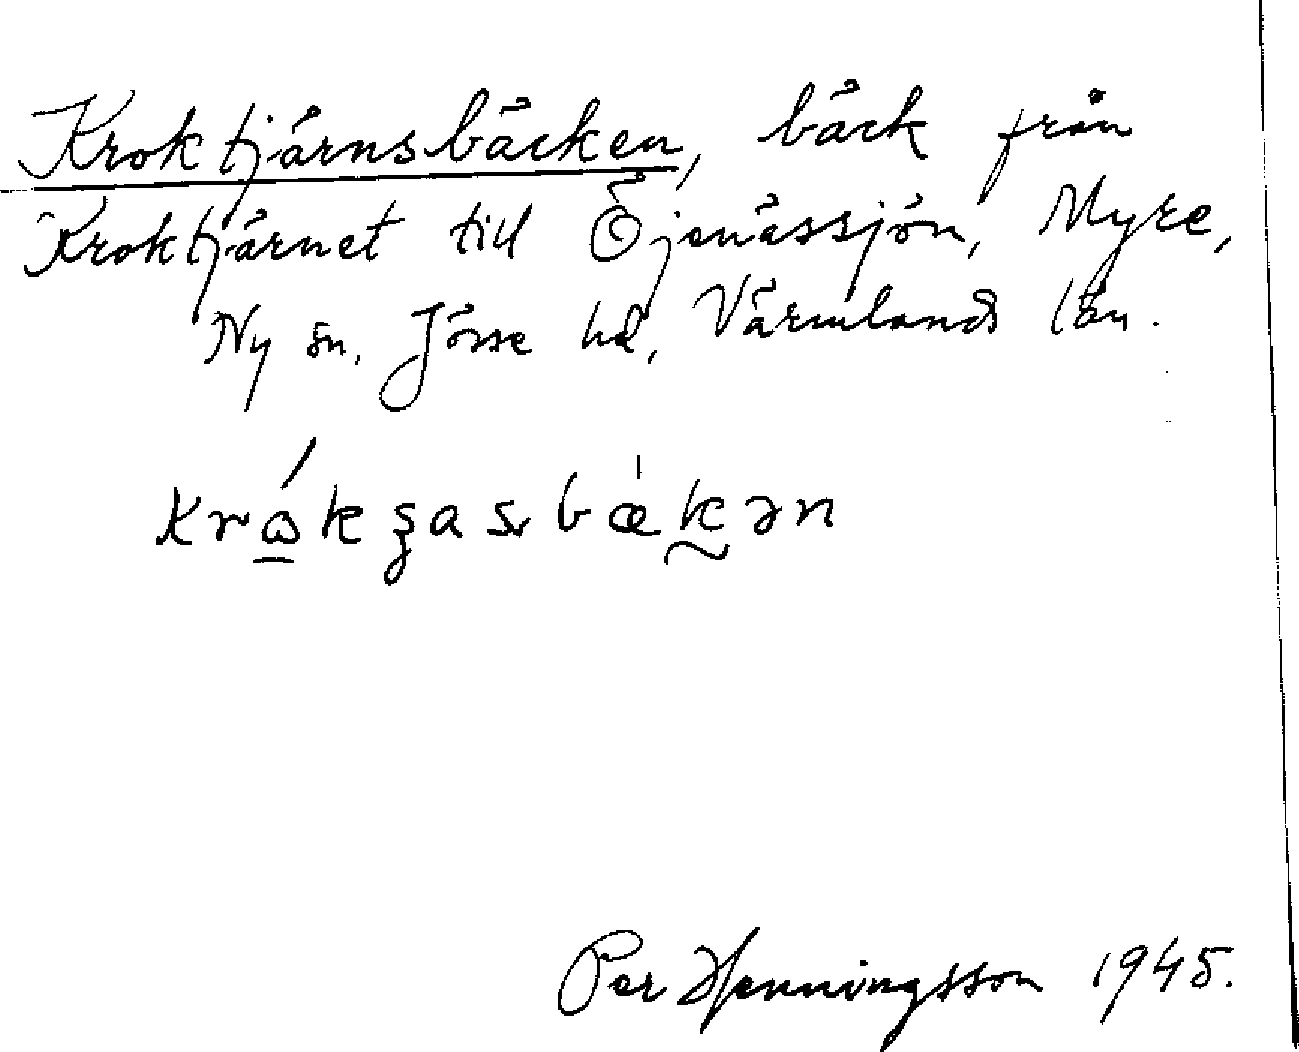 Kroktjärnsbäcken, bäck från
Kroktjärnet till Öjenässjön, Myre,
Ny sn, Jösse hd, Värmlands län.
Per Henningsson 1945.